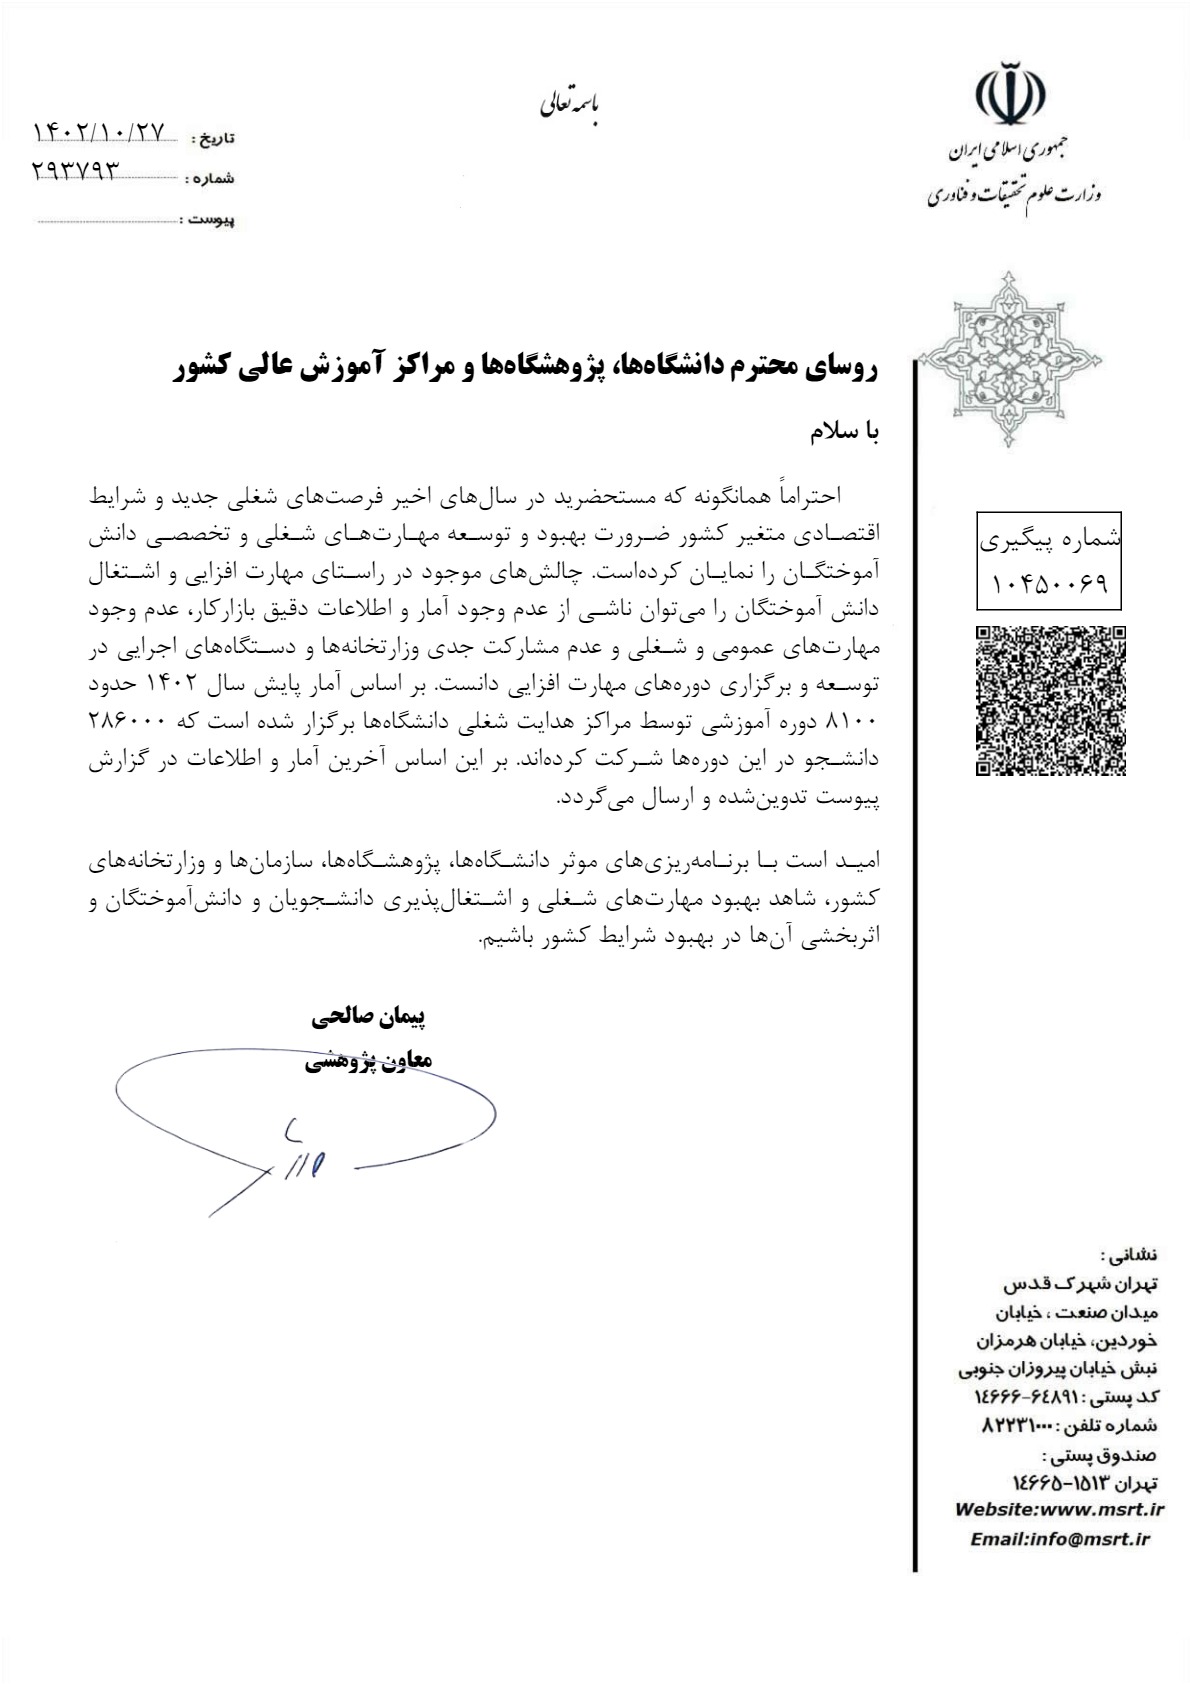 باسمه تعالی
جمهوری اسلامی ایران
وزارت علوم تحقیقات و فناوری
تاریخ : ۱۴۰۲/۱۰/۲۷
شماره : ۲۹۳۷۹۳
پیوست :
روسای محترم دانشگاه‌ها، پژوهشگاه‌ها و مراکز آموزش عالی کشور
با سلام
احتراماً همانگونه که مستحضرید در سال‌های اخیر فرصت‌های شغلی جدید و شرایط
اقتصادی متغیر کشور ضرورت بهبود و توسعه مهارت‌های شغلی و تخصصی دانش
آموختگان را نمایان کرده‌است. چالش‌های موجود در راستای مهارت افزایی و اشتغال
دانش آموختگان را می‌توان ناشی از عدم وجود آمار و اطلاعات دقیق بازارکار، عدم وجود
مهارت‌های عمومی و شغلی و عدم مشارکت جدی وزارتخانه‌ها و دستگاه‌های اجرایی در
توسعه و برگزاری دوره‌های مهارت افزایی دانست. بر اساس آمار پایش سال ۱۴۰۲ حدود
۸۱۰۰ دوره آموزشی توسط مراکز هدایت شغلی دانشگاه‌ها برگزار شده است که ۲۸۶۰۰۰
دانشجو در این دوره‌ها شرکت کرده‌اند. بر این اساس آخرین آمار و اطلاعات در گزارش
پیوست تدوین‌شده و ارسال می‌گردد.
امید است با برنامه‌ریزی‌های موثر دانشگاه‌ها، پژوهشگاه‌ها، سازمان‌ها و وزارتخانه‌های
کشور، شاهد بهبود مهارت‌های شغلی و اشتغال‌پذیری دانشجویان و دانش‌آموختگان و
اثربخشی آن‌ها در بهبود شرایط کشور باشیم.
پیمان صالحی
معاون پژوهشی
شماره پیگیری
۱۰۴۵۰۰۶۹
نشانی :
تهران شهرک قدس
میدان صنعت ، خیابان
خوردین، خیابان هرمزان
نبش خیابان پیروزان جنوبی
کد پستی : ۶۴۸۹۱-۱۴۶۶۶
شماره تلفن : ۸۲۲۳۱۰۰۰
صندوق پستی :
تهران ۱۵۱۳-۱۴۶۶۵
Website:www.msrt.ir
Email:info@msrt.ir